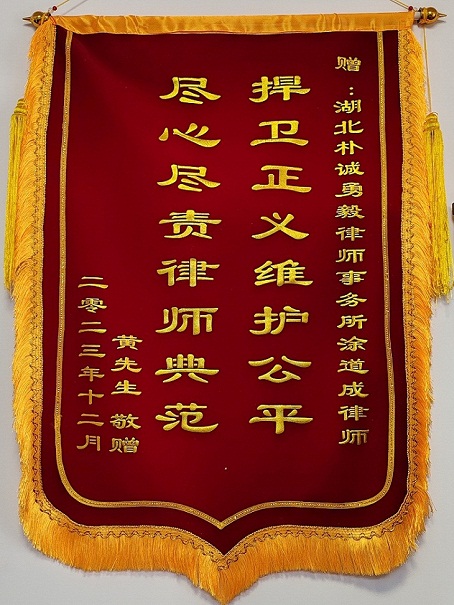 赠：湖北朴诚勇毅律师事务所涂道成律师
捍卫正义维护公平
尽心尽责律师典范
黄先生 敬赠
二零二三年十二月